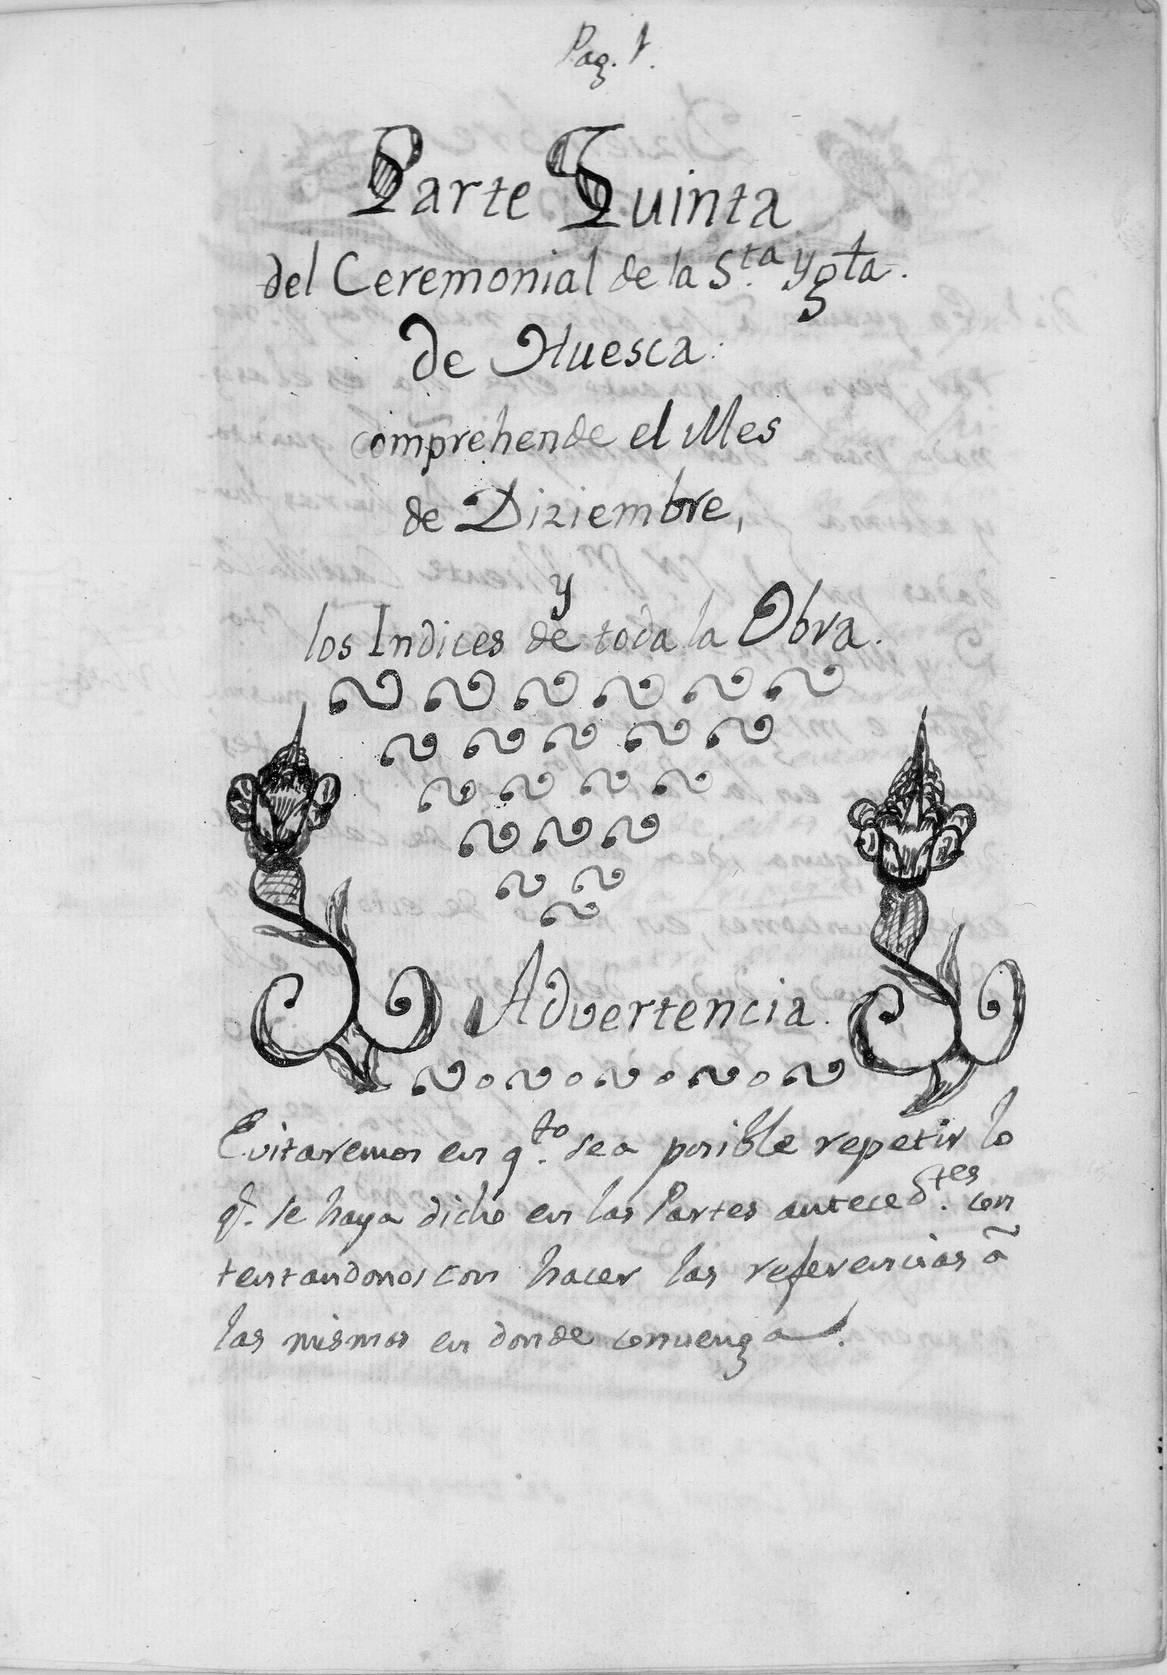 Pag. 1.
Parte Quinta
del Ceremonial de la S.ta Ygta.
de Huesca.
comprehende el Mes
de Diziembre,
y
los Indices de toda la Obra.
Advertencia.
Evitaremos en q.to sea posible repetir lo
q. se haya dicho en las Partes anteced.tes con
tentandonos con hacer las referencias â
las mismas en donde convenga.